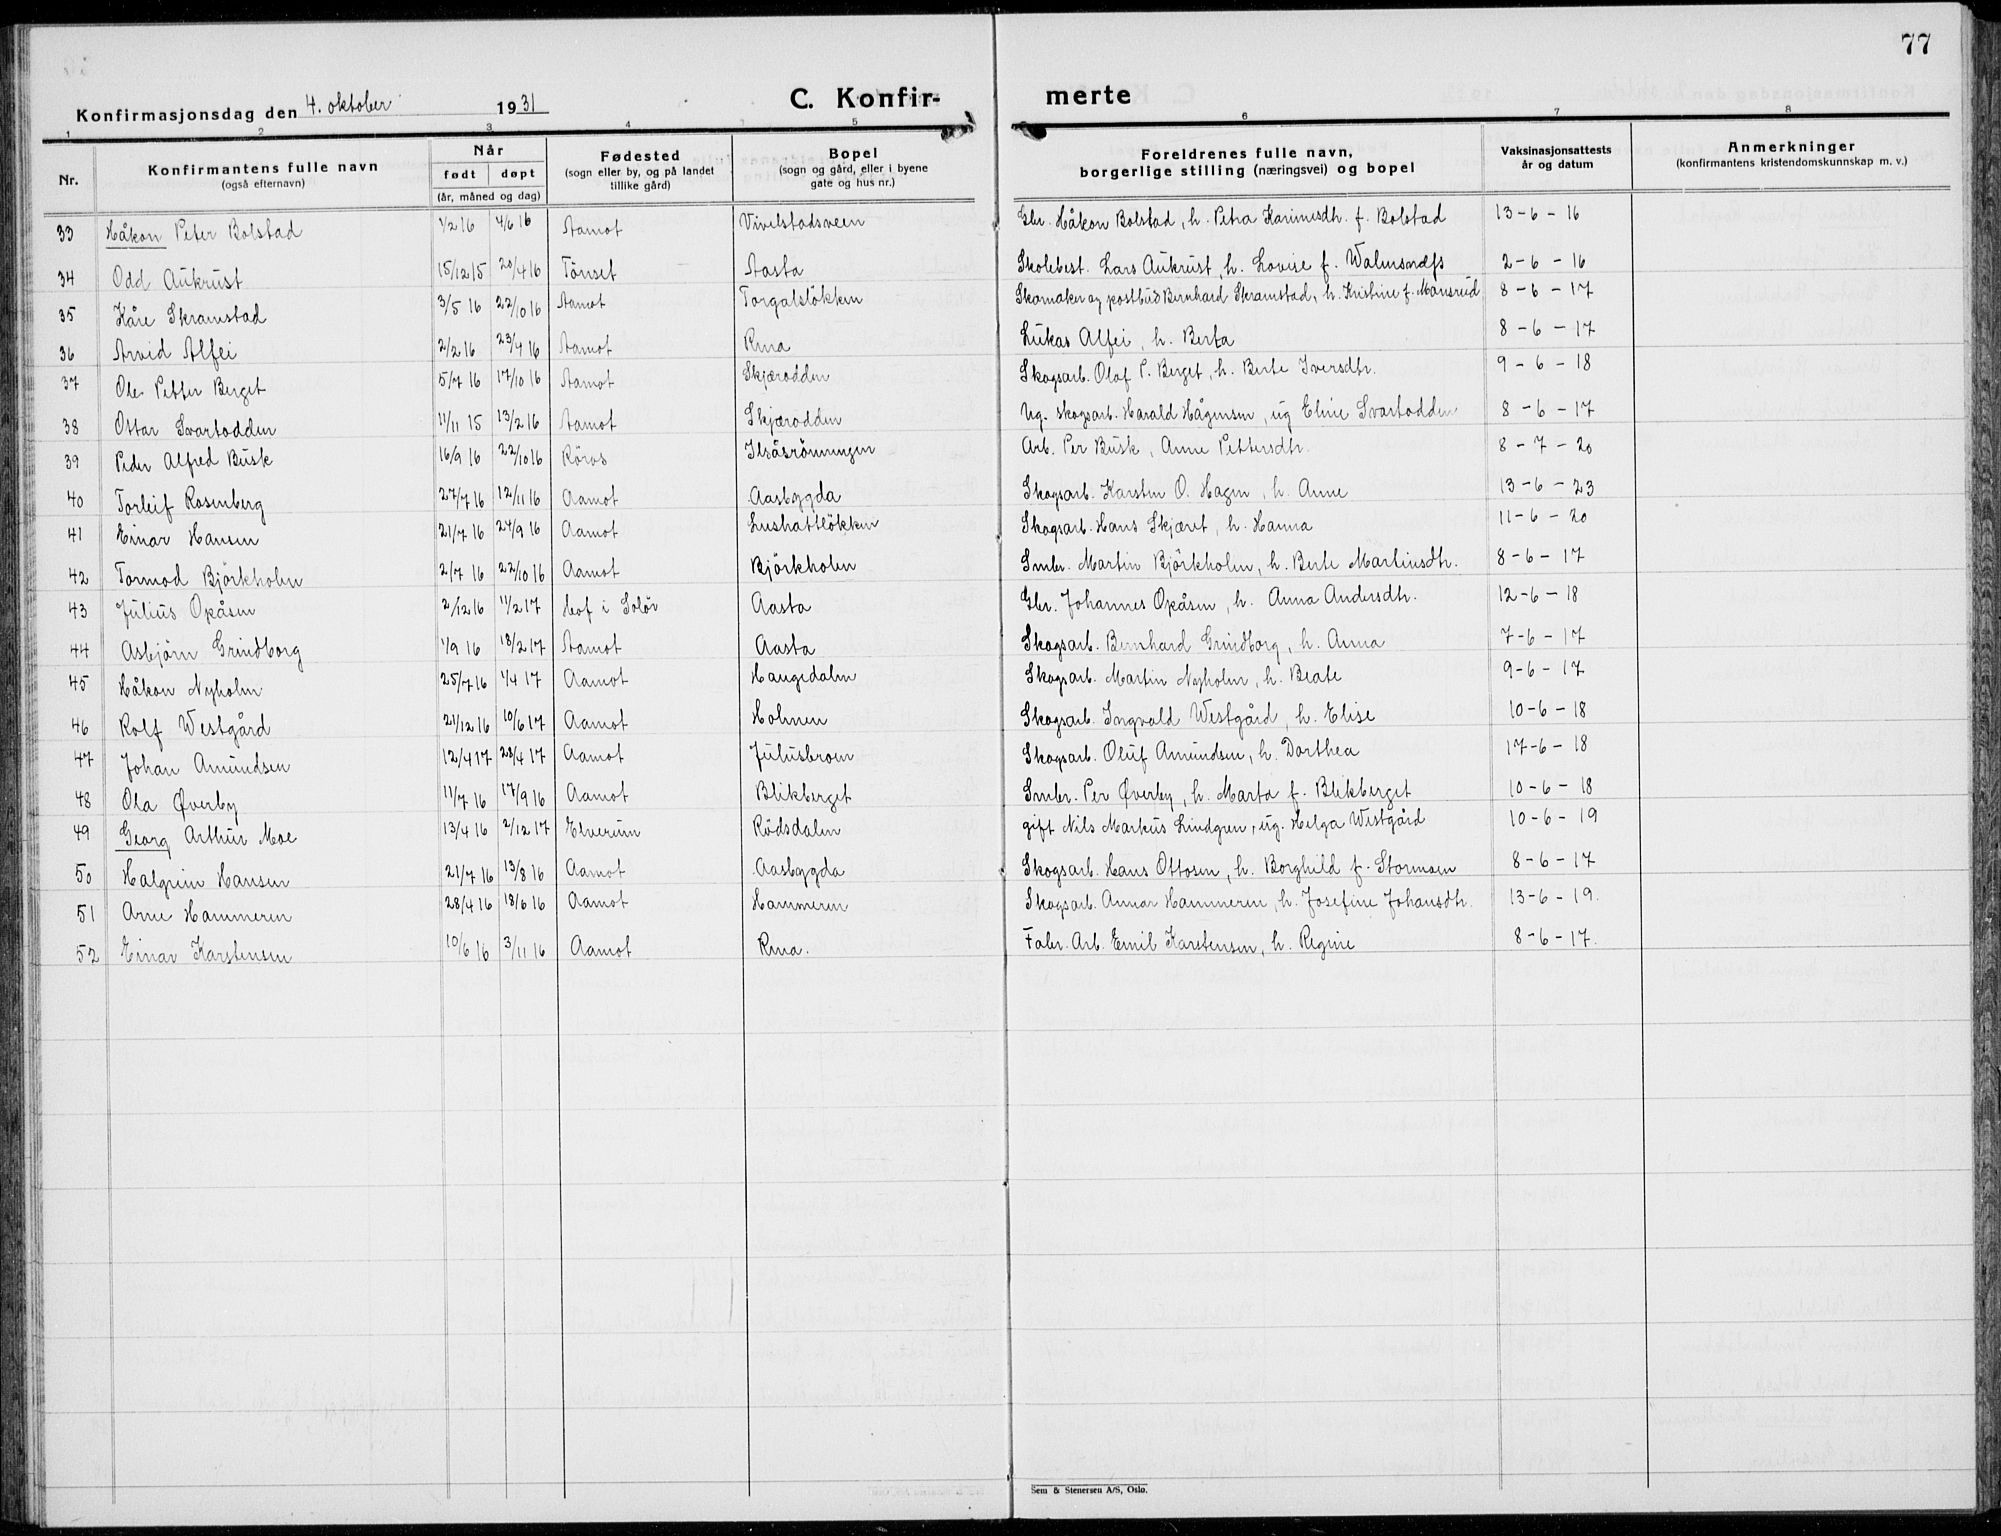 77
Konfirmasjonsdag den 4. oktober 1931 C. Konfir- merte
1 2 3 4 5 6 7 8
Nr. Konfirmantens fulle navn (også efternavn) Når født døpt (år, måned og dag) Fødested (sogn eller by, og på landet tillike gård) Bopel (sogn og gård, eller i byene gate og hus nr.) Foreldrenes fulle navn, borgerlige stilling (næringsvei) og bopel Vaksinasjonsattests år og datum Anmerkninger (konfirmantens kristendomskunnskap m. v.)
33 Håkon Peter Bolstad 1/2 16 4/6 16 Aamot Vivelstadsveen Gbr. Håkon Bolstad, h. Petra Karinesdtr. f. Bolstad 13-6-16
34 Odd Aukrust 15/12 15 20/4 16 Tönset Aasta Skolebest. Lars Aukrust, h. Lovise f. Walmsnæss 2-6-16
35 Kåre Skramstad 3/5 16 22/10 16 Aamot Torgalslökken Skomaker og postbud Bernhard Skramstad, h. Kristine f. Månsrud 8-6-17
36 Arvid Alfei 2/2 16 23/4 16 Aamot Rena Lukas Alfei, h. Berta 8-6-17
37 Ole Petter Berget 5/7 16 17/10 16 Aamot Skjærodden Skogsarb. Olaf P. Berget, h. Berte Iversdtr. 9-6-18
38 Ottar Svartodden 11/11 15 13/2 16 Aamot Skjærodden Ug. skogsarb. Harald Hågensen, ug Eline Svartodden 8-6-17
39 Peder Alfred Busk 16/9 16 22/10 16 Röros Ilsåsrönningen Arb. Per Busk, Anne Pettersdtr. 8-7-20
40 Torleif Rosenberg 27/7 16 12/11 16 Aamot Aasbygda Skogsarb. Karsten O. Hagen, h. Anne 13-6-23
41 Einar Hansen 21/7 16 24/9 16 Aamot Lushattlökken Skogsarb. Hans Skjæret, h. Hanna 11-6-20
42 Tormod Björkholen 2/7 16 22/10 16 Aamot Björkholen Smbr. Martin Björkholen, h. Berte Martinsdtr. 8-6-17
43 Julius Opåsen 2/12 16 11/2 17 Hof i Solör Aasta Gbr. Johannes Opåsen, h. Anna Andersdtr. 12-6-18
44 Asbjörn Grindborg 1/9 16 18/2 17 Aamot Aasta Skogsarb. Bernhard Grindborg, h. Anna 7-6-17
45 Håkon Nyholm 25/7 16 1/4 17 Aamot Haugedalen Skogsarb. Martin Nyholm, h. Beate 9-6-17
46 Rolf Westgård 21/12 16 10/6 17 Aamot Holmen Skogsarb. Ingvald Westgård, h. Elise 10-6-18
47 Johan Amundsen 12/4 17 28/4 17 Aamot Julusbroen Skogsarb. Oluf Amundsen, h. Dorthea 17-6-18
48 Ola Øverby 11/7 16 17/9 16 Aamot Blikberget Smbr. Per Øverby, h. Marta f. Blikberget 10-6-18
49 Georg Arthur Moe 13/4 16 2/12 17 Elverum Rödsdalen gift Nils Markus Lindgren, ug. Helga Westgård 10-6-19
50 Halgrim Hansen 21/7 16 13/8 16 Aamot Aasbygda Skogsarb. Hans Ottosen, h. Borghild f. Stormoen 8-6-17
51 Arne Hammeren 28/4 16 18/6 16 Aamot Hammeren Skogsarb. Annar Hammeren, h. Josefine Johansdtr. 13-6-19.
52 Einar Karstensen 10/6 16 3/11 16 Aamot Rena. Fabr. Arb. Emil Karstensen, h. Regine 8-6-17.
Sem & Stenersen A/S, Oslo.